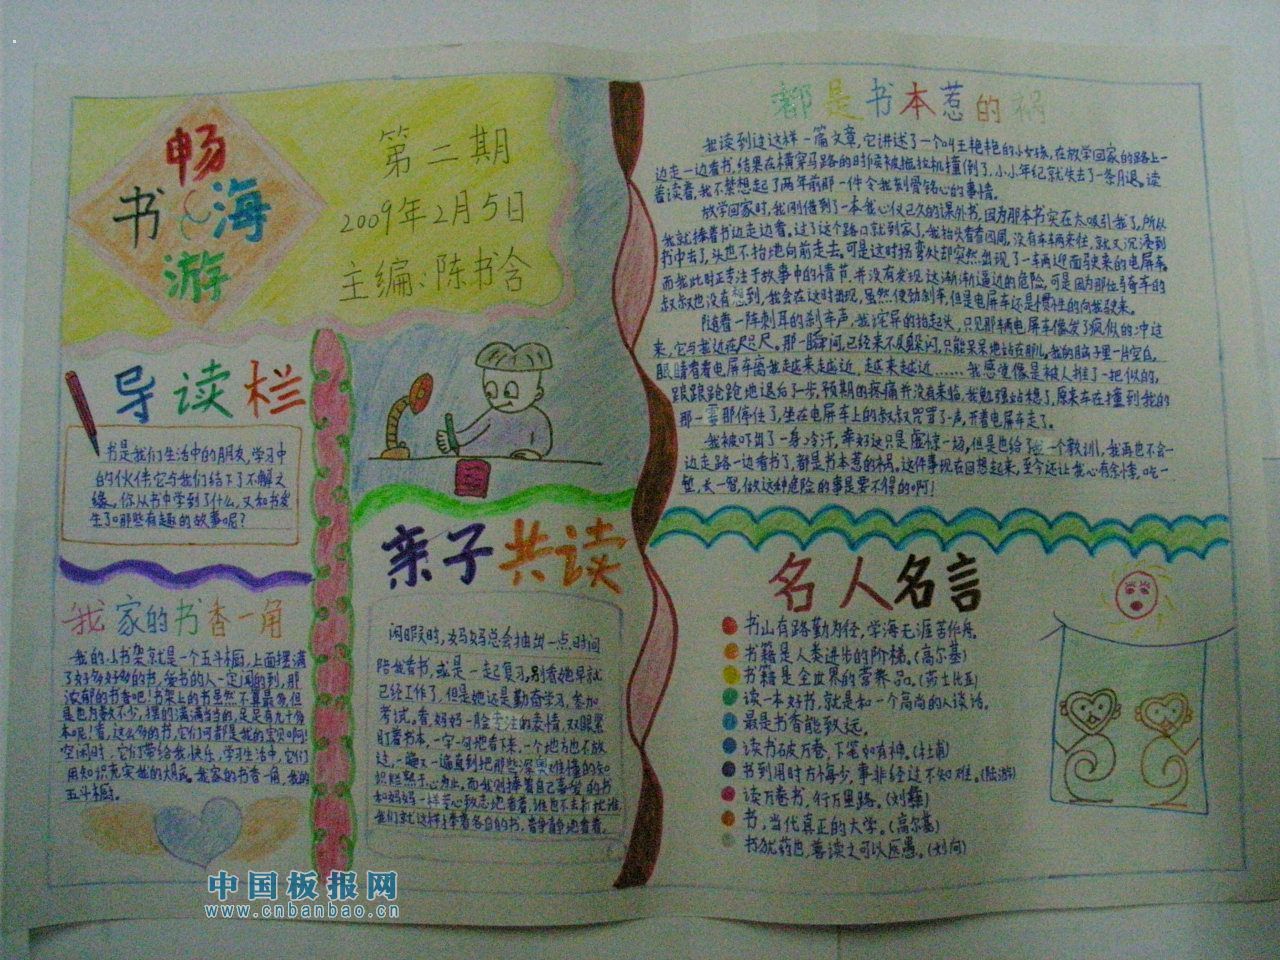 畅
书海
游
第二期
2009年2月5日
主编:陈书含
导读栏
书是我们生活中的朋友,学习中
的伙伴,它与我们结下了不解之
缘。你从书中学到了什么,又和书发
生了哪些有趣的故事呢?
我家的书香一角
我的小书架就是一个五斗橱,上面摆满
了好多好多的书,爱书的人一定闻的到,那
浓郁的书香吧!书架上的书虽然不算最多,但
是也为数不少,摆的满满当当的,足足有九十多
本呢!看,这么多的书,它们可都是我的宝贝啊!
空闲时,它们带给我快乐,学习生活中,它们
用知识充实我的大脑。我家的书香一角,我的
五斗橱。
亲子共读
闲暇时,妈妈总会抽出一点时间
陪我看书,或是一起复习。别看她早就
已经工作了,但是她还是勤奋学习,参加
考试。看,妈妈一脸专注的表情,双眼紧
盯着书本,一字一句地看下来,一个地方也不放
过,一遍又一遍直到把那些深奥难懂的知
识烂熟于心为止。而我则捧着自己喜爱的书
和妈妈一样专心致志地看着,谁也不去打扰谁,
我们就这样捧着各自的书,静静地看着。
都是书本惹的祸
我读到过这样一篇文章,它讲述了一个叫王艳艳的小女孩,在放学回家的路上一
边走一边看书,结果在横穿马路的时候被拖拉机撞倒了,小小年纪就失去了一条腿。读
着读着,我不禁想起了两年前那一件令我刻骨铭心的事情。
放学回家时,我刚借到了一本我心仪已久的课外书,因为那本书实在太吸引我了,所以
我就捧着书边走边看。过了这个路口就到家了,我抬头看看四周,没有车辆来往,就又沉浸到
书中去了,头也不抬地向前走去。可是这时拐弯处却突然出现了一车两迎面驶来的电屏车。
而我此时正专注于故事中的情节,并没有发现这渐渐逼近的危险,可是因为那位骑车的
叔叔也没有想到我会在这时出现,虽然使劲刹车,但是电屏车还是惯性的向我驶来。
随着一阵刺耳的刹车声,我诧异的抬起头,只见那辆电屏车像发了疯似的冲过
来,它与我近在咫尺。那一瞬间,已经来不及躲闪,只能呆呆地站在那儿。我的脑子里一片空白,
眼睛看着电屏车离我越来越近,越来越近……我感觉像是被人推了一把似的,
踉踉跄跄地退后了一步,预期的疼痛并没有来临,我勉强站稳了,原来车在撞到我的
那一霎那停住了,坐在电屏车上的叔叔咒骂了一声,开着电屏车走了。
我被吓出了一身冷汗,幸好这只是虚惊一场,但是也给了我一个教训,我再也不会一
边走路一边看书了,都是书本惹的祸。这件事现在回想起来,至今还让我心有余悸,吃一
堑,长一智,做这种危险的事是要不得的啊!
名人名言
书山有路勤为径,学海无涯苦作舟。
书籍是人类进步的阶梯。(高尔基)
书籍是全世界的营养品。(莎士比亚)
读一本好书,就是和一个高尚的人谈话。
最是书香能致远。
读书破万卷,下笔如有神。(杜甫)
书到用时方恨少,事非经过不知难。(陆游)
读万卷书,行万里路。(刘彝)
书,当代真正的大学。(高尔基)
书犹药也,善读之可以医愚。(刘向)
中国板报网
www.cnbanbao.cn